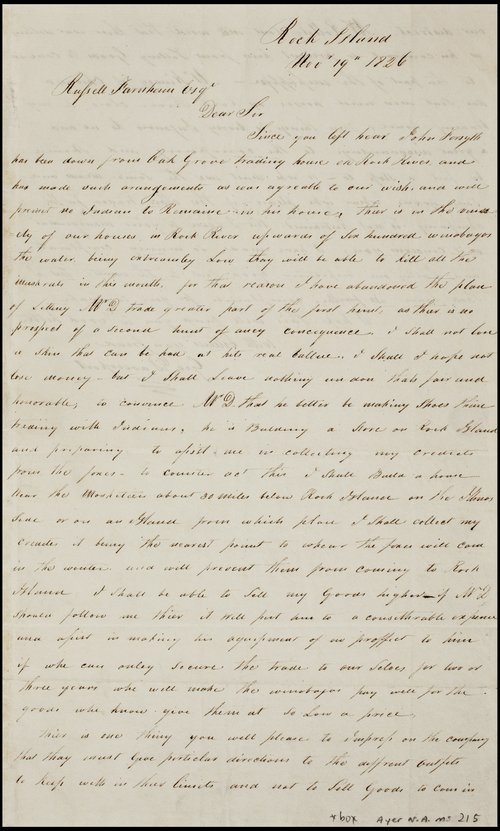 Rock Island
Novr 19th 1826
Russell Farnham Esqr
Dear Sir
Since you left hear John Forsyth
has been down from Oak Grove trading house on Rock River and
has made such arangements as was agreable to our wish and will
permit no Indian to Remaine in his house, thier is in the
of our houses in Rock River upwards of Six hundred winobagos
the water being extreamly Low thay will be able to kill all the
Muskrats in this month, for that reason I have abandoned the plan
of Letting Mr D trade greater part of the first hunt, as thier is no
prospect of a second hunt of aney concequence, I shall not lose
a skin that can be had at hits real vallue. I shall I hope not
lose money - but I Shall Leave nothing undon thats fair and
honorable, to convince Mr D that he better be making Shoes than
trading with Indians, he is Building a Store on Rock Island
and preparing to assist me in collecting my creadits
from the foxes - to counter act this I Shall Build a house
Near the Muskitien about 30 miles below Rock Island on the Illinos
Side or on an Island from which place I Shall collect my
creadits it being the nearest point to whear the foxes will com
in the winter and will prevent them from coming to Rock
Island I shall be able to Sell my Goods higher - if Mr D
Should follow me thier it will put him to a considerable expence
and assist in making his aquipment of no proffit to him
if whe can onley Secure the trade to our Selves for two or
three years whe will make the winobagos pay well for the
goods whe know give them at so Low a price
thier is one thing you will please to impress on the company
that thay must Give perticular directions to the diffrent outfits
to keep with in thier limits and not to Sell Goods to com in
x box Ayer N.A. ms 215